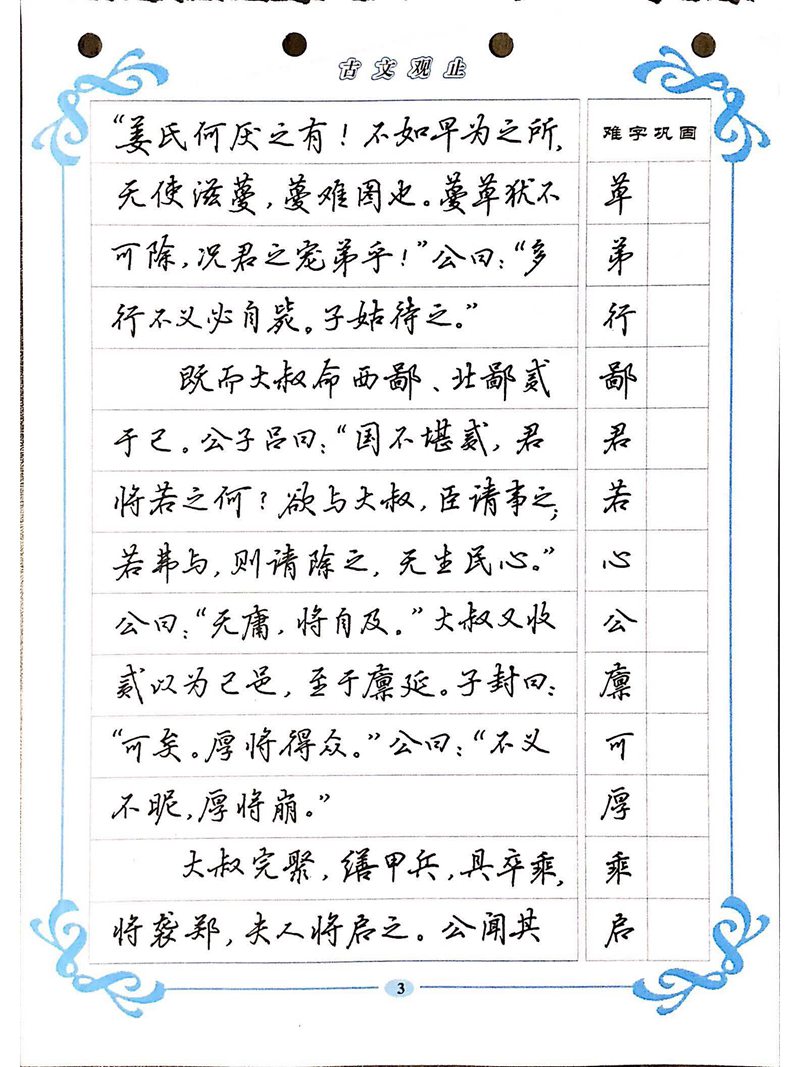 古文观止
"姜氏何厌之有！不如早为之所，
无使滋蔓，蔓难图也。蔓草犹不
可除，况君之宠弟乎！"公曰："多
行不义必自毙。子姑待之。"
既而大叔命西鄙、北鄙贰
于己。公子吕曰："国不堪贰，君
将若之何？欲与大叔，臣请事之；
若弗与，则请除之，无生民心。"
公曰："无庸，将自及。"大叔又收
贰以为己邑，至于廪延。子封曰：
"可矣。厚将得众。"公曰："不义
不昵，厚将崩。"
大叔完聚，缮甲兵，具卒乘，
将袭郑，夫人将启之。公闻其
难字巩固
草
弟
行
鄙
君
若
心
公
廪
可
厚
乘
启
3